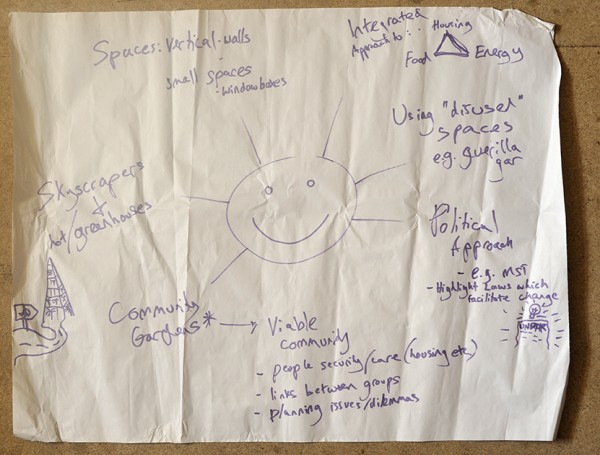 Spaces: Vertical-walls
-
small spaces
- window boxes
Integrated
Approach to:
Housing
Food
Energy
Using "disused"
spaces
e.g. guerilla
gar
Skyscrapers
+
hot/greenhouses
Political
Approach
- e.g. MST
- Highlight Laws which
facilitate change
Community
Gardens* → Viable
community
- people security/care (housing etc)
- links between groups
- planning issues/dilemmas